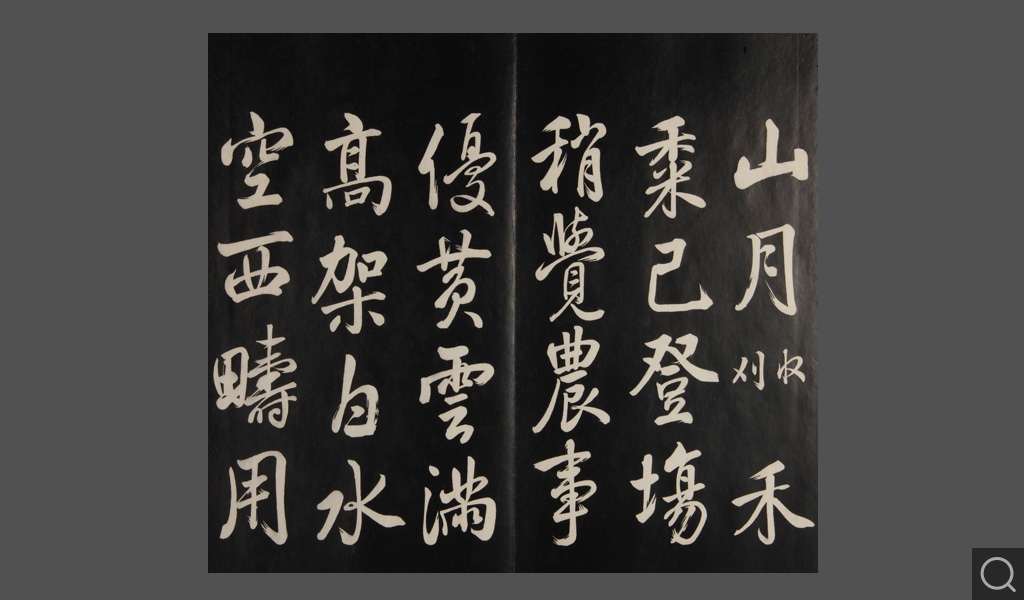 山月收刈禾
黍已登塲
稍覺農事
優黄雲滿
高架白水
空西疇用